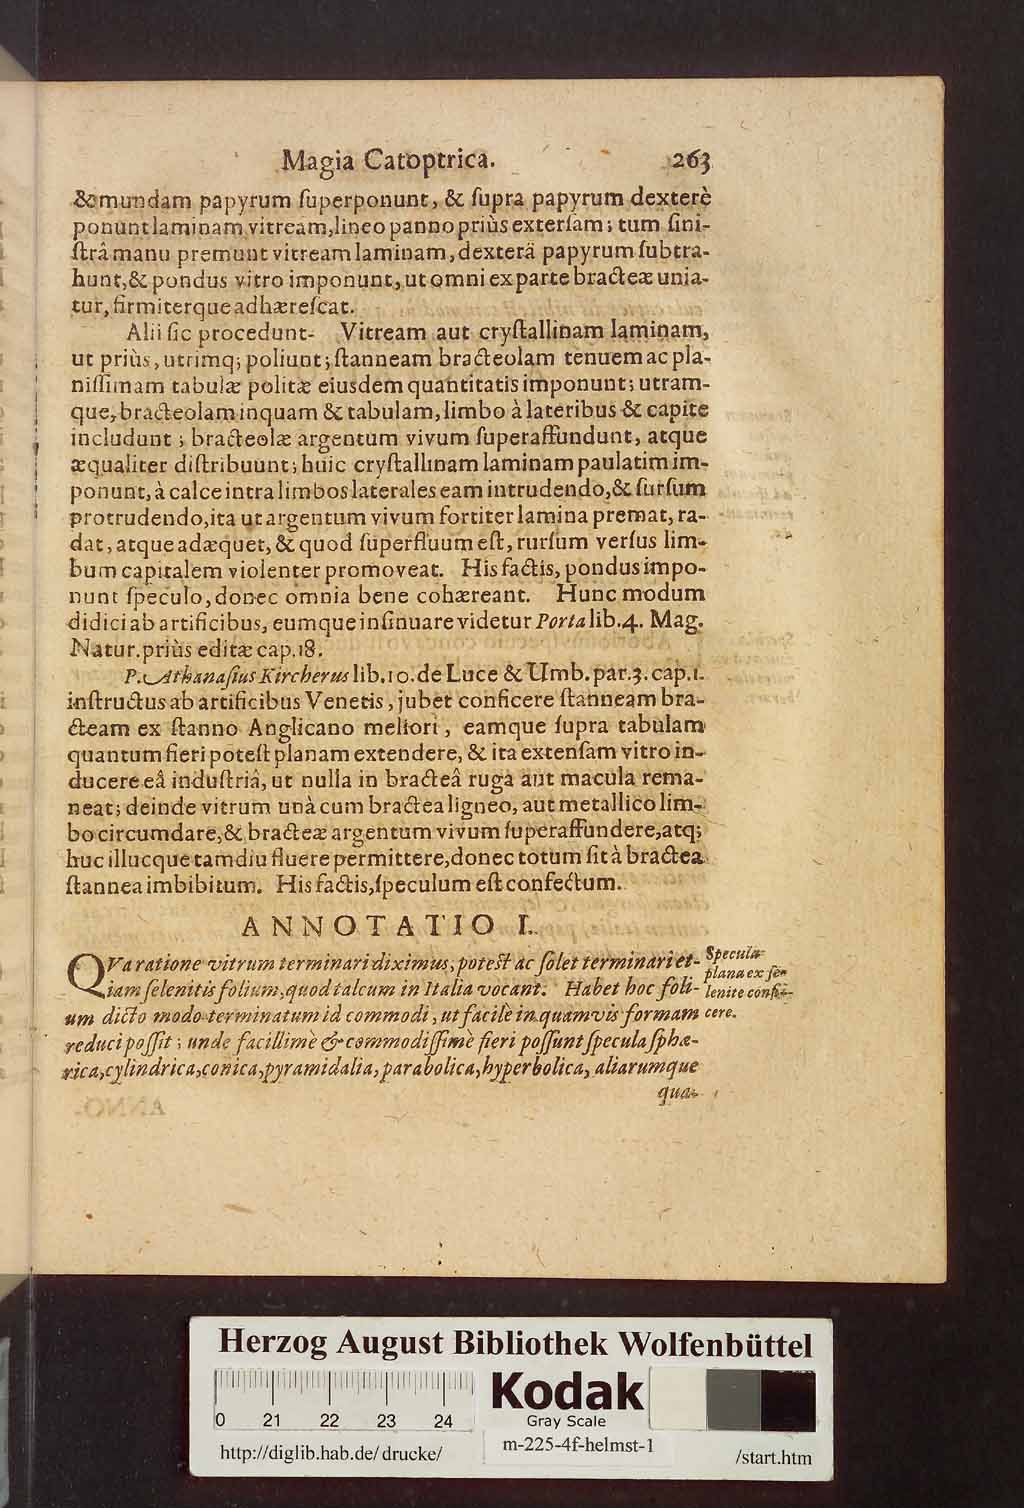 Magia Catoptrica. 263
& mundam papyrum ſuperponunt, & ſupra papyrum dexterè
ponunt laminam vitream, lineo panno priùs exterſam; tum ſini-
ſtrâ manu premunt vitream laminam, dexterâ papyrum ſubtra-
hunt, & pondus vitro imponunt, ut omni ex parte bracteæ unia-
tur, firmiterque adhæreſcat.
Alii ſic procedunt- Vitream aut cryſtallinam laminam,
ut priùs, utrimq; poliunt; ſtanneam bracteolam tenuem ac pla-
niſſimam tabulæ politæ eiusdem quantitatis imponunt; utram-
que, bracteolam inquam & tabulam, limbo à lateribus & capite
includunt; bracteolæ argentum vivum ſuperaffundunt, atque
æqualiter diſtribuunt; huic cryſtallinam laminam paulatim im-
ponunt, à calce intra limbos laterales eam intrudendo, & ſurſum
protrudendo, ita ut argentum vivum fortiter lamina premat, ra-
dat, atque adæquet, & quod ſuperfluum eſt, rurſum verſus lim-
bum capitalem violenter promoveat. His factis, pondus impo-
nunt ſpeculo, donec omnia bene cohæreant. Hunc modum
didici ab artificibus, eumque inſinuare videtur Porta lib. 4. Mag.
Natur. priùs editæ cap. 18.
P. Athanaſius Kircherus lib. 10. de Luce & Umb. par. 3. cap. 1.
inſtructus ab artificibus Venetis, jubet conficere ſtanneam bra-
cteam ex ſtanno Anglicano meliori, eamque ſupra tabulam
quantum fieri poteſt planam extendere, & ita extenſam vitro in-
ducere eâ induſtriâ, ut nulla in bracteâ ruga aut macula rema-
neat; deinde vitrum unà cum bractea ligneo, aut metallico lim-
bo circumdare, & bracteæ argentum vivum ſuperaffundere, atq;
huc illucque tamdiu fluere permittere, donec totum ſit à bractea
ſtannea imbibitum. His factis, ſpeculum eſt confectum.
ANNOTATIO I.
QVa ratione vitrum terminari diximus, poteſt ac ſolet terminari et-
iam ſelenitis folium, quod talcum in Italia vocant. Habet hoc foli-
um dicto modo terminatum id commodi, ut facilè in quamvis formam
reduci poſſit; unde facillimè & commodiſſimè fieri poſſunt ſpecula ſphæ-
rica, cylindrica, conica, pyramidalia, parabolica, hyperbolica, aliarumque
qua-
Specula
plana ex ſe-
lenite confi-
cere.
Herzog August Bibliothek Wolfenbüttel
0 21 22 23 24
Kodak
Gray Scale
http://diglib.hab.de/drucke/
m-225-4f-helmst-1
/start.htm